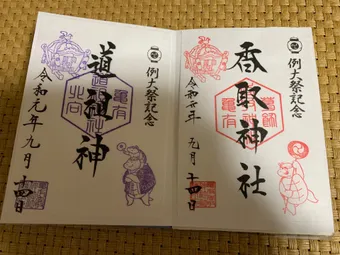 例大祭記念
香取神社
葛飾
亀有
令和元年 九月 十四日
例大祭記念
道祖神
亀有
令和元年九月 十四日